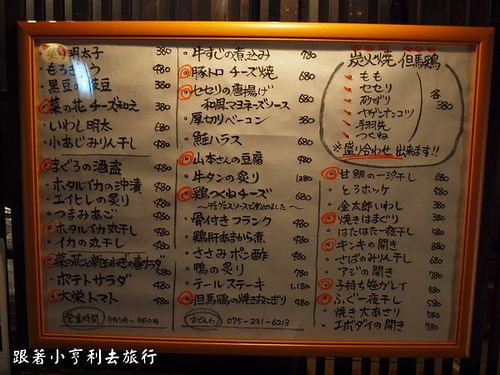 炙り明太子 380
もろきゅう 480
黒豆の枝豆 380
菜の花チーズ和え 380
いわし明太 680
小あじみりん干し 480
まぐろの酒盗 480
ホタルイカの沖漬 480
エイヒレの炙り 480
つまみあご 480
ホタルイカ丸干し 480
イカの丸干し 480
ポテトサラダ 480
大栄トマト 480
営業時間
牛すじの煮込み 780
豚トロチーズ焼 680
セセリの唐揚げ
和風マヨネーズソース 680
厚切りベーコン 480
鮭ハラス 680
山本さんの豆腐 480
牛タンの炙り 1280
鶏つくねチーズ 680
骨付きフランク 480
鶏肝あまから煮 480
ささみポン酢 480
鴨の炙り 780
テールステーキ 1,180
但馬鶏の焼おにぎり 480
でんわ 075-231-6213
炭火焼 但馬鶏
もも
セセリ
ずり
ヤゲンナンコツ
手羽先
つくね
各 380
※盛り合わせ出来ます!!
甘鯛の一汐干し 680
とろホッケ 780
金太郎いわし 380
焼きはまぐり 680
はたはた一夜干し 580
キンキの開き 880
さばのみりん干し 680
アジの開き 780
子持ち笹がレイ 580
ふぐ一夜干し 580
焼き大あさり 580
エボダイの開き 780
跟著小亨利去旅行